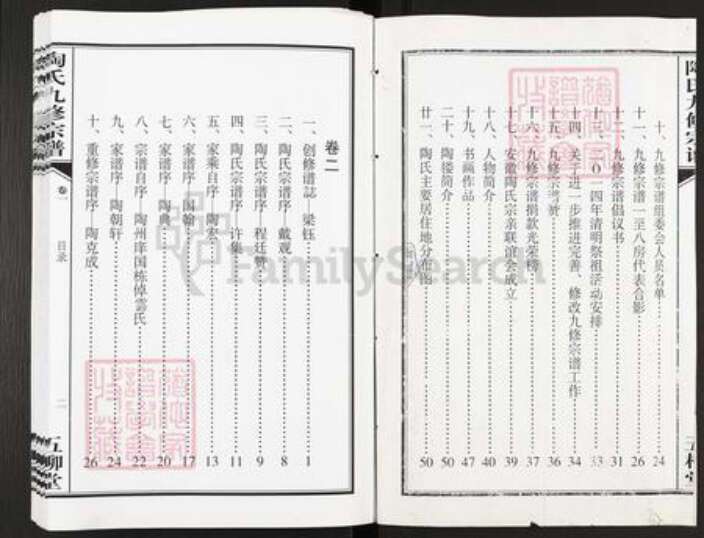 陶氏九修宗谱
十、九修宗谱组委会人员名单 24
十一、九修宗谱一至八房代表合影 26
十二、九修宗谱倡议书 31
十三、二〇一四年清明祭祖活动安排 33
十四、关于进一步推进完善、修改九修宗谱工作 34
十五、九修宗谱赞 36
十六、九修宗谱捐款光荣榜 37
十七、安徽陶氏宗亲联谊会成立 39
十八、人物简介 40
十九、书画作品 47
二十、陶楼简介 50
廿一、陶氏主要居住地分布图 50
卷二
一、创修谱誌 梁钰 1
二、陶氏宗谱序 戴观 8
三、陶氏宗谱序 程廷赞 9
四、陶氏宗谱序 许集 11
五、家乘自序 陶宏 13
六、家谱序 国翰 17
七、家谱序 陶典 20
八、宗谱自序 陶州庠国栋倬雲氏 22
九、家谱序 陶朝轩 24
十、重修宗谱序 陶克成 26
陶氏九修宗谱
卷一
目录
二
五柳堂
FamilySearch